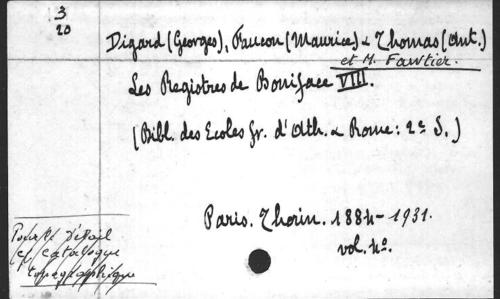 3
20
Digard (Georges), Faucon (Maurice) & Thomas (Ant.)
et M. Fawtier.
Les Registres de Boniface VIII.
(Bibl. des Ecoles fr. d'Ath. & Rome: 2e S.)
Paris. Thorin. 1884-1931.
vol. 4o.
Pour le Détail
cf catalogue
topographique